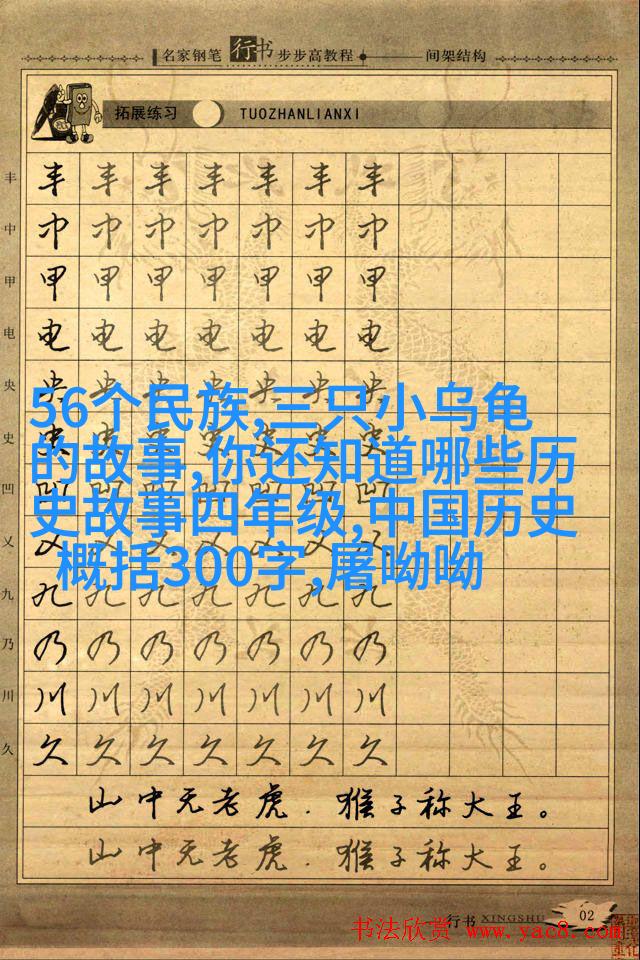 名家钢笔 行书 步步高教程 间架结构
拓展练习 TUOZHANLIANXI
丰 丰 丰 丰 丰 丰 丰 丰
中 中 中 中 中 中 中 中
甲 甲 甲 甲 甲 甲 甲 甲
电 电 电 电 电 电 电 电
央 央 央 央 央 央 央 央
56个民族,三只小乌龟
史 史 史 史 史 史 史 史
的故事,你还知道哪些历
凹 凹 凹 凹 凹 凹 凹 凹
史故事四年级,中国历史
义 义 义 义 义 义 义 义
概括300字,屠呦呦
九 九 九 九 九 九 九 九
乃 乃 乃 乃 乃 乃 乃 乃
川 川 川 川 川 川 川 川
久 久 久 久 久 久 久 久
山中无老虎.猴子称大王。
山中无老虎.猴子称大王。
行书 XINGSHU 02
书法欣赏 www.yac8.com